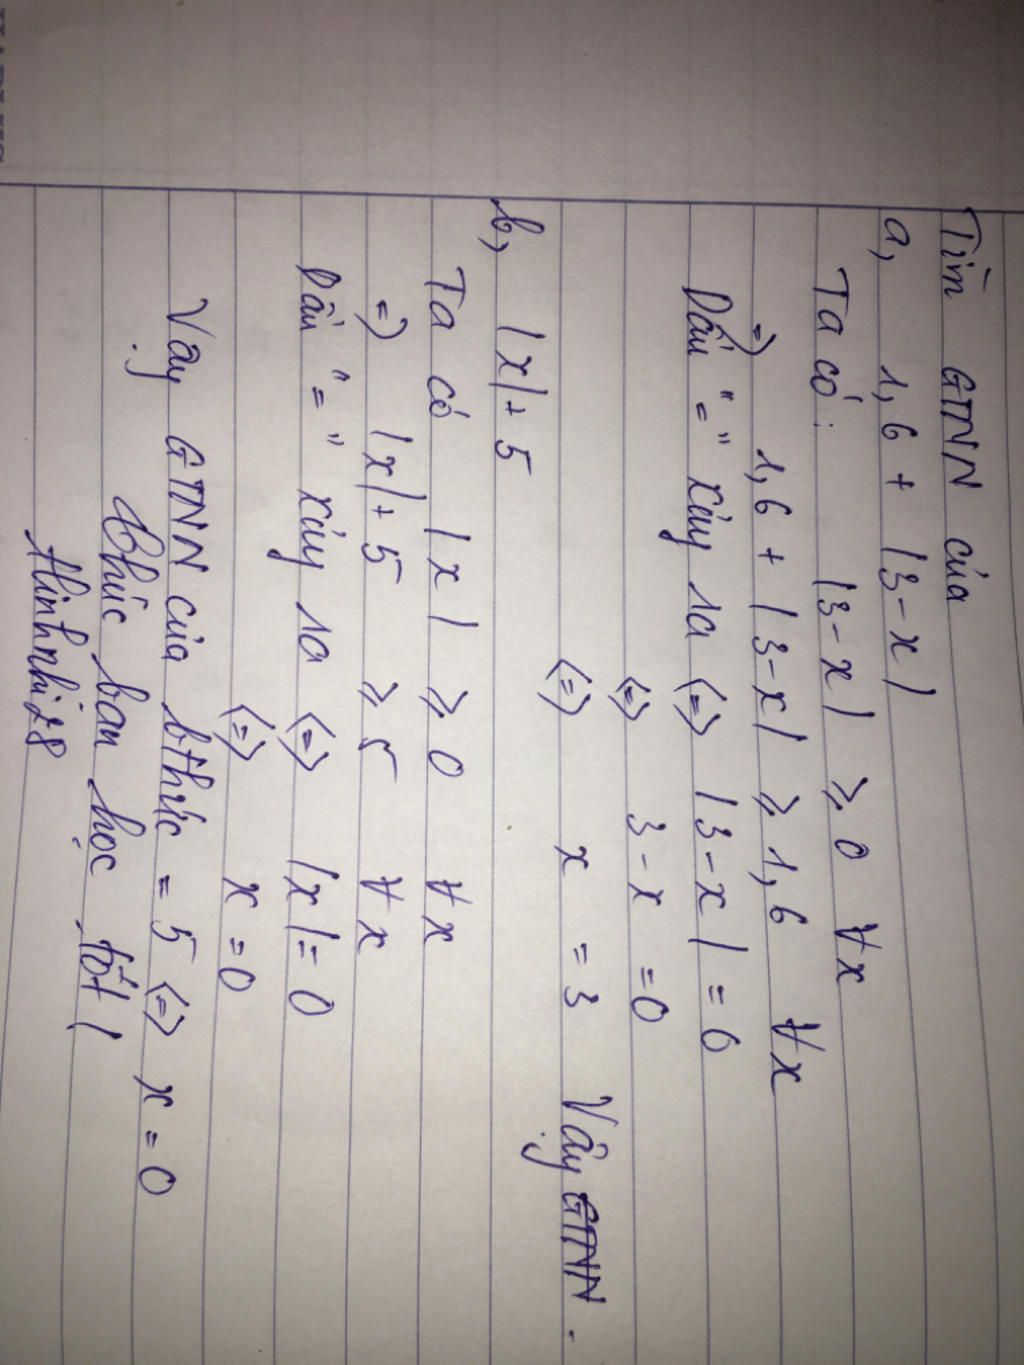 Tìm GTNN của
a, 1,6 + |3-x|
Ta có: |3-x| ≥ 0 ∀x
=) 1,6 + |3-x| ≥ 1,6 ∀x
Dấu "=" xảy ra (=) |3-x| = 0
(=) 3-x = 0
(=) x = 3 Vậy GTNN -
b, |x|+5
Ta có |x| ≥ 0 ∀x
=) |x|+5 ≥ 5 ∀x
Dấu "=" xảy ra (=) |x|= 0
(=) x = 0
Vậy GTNN của bthức = 5 (=) x = 0
Chúc bạn học tốt!